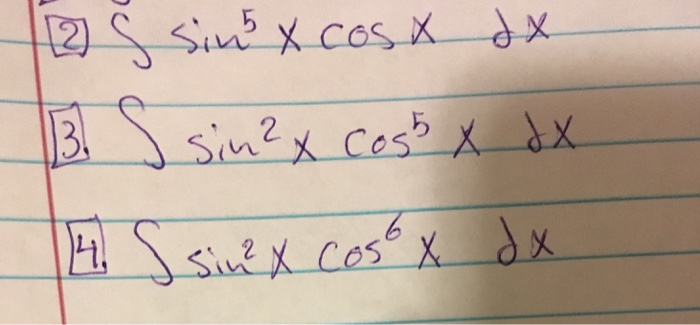 2 ∫ sin⁵ x cos x dx
3. ∫ sin² x cos⁵ x dx
4. ∫ sin² x cos⁶ x dx